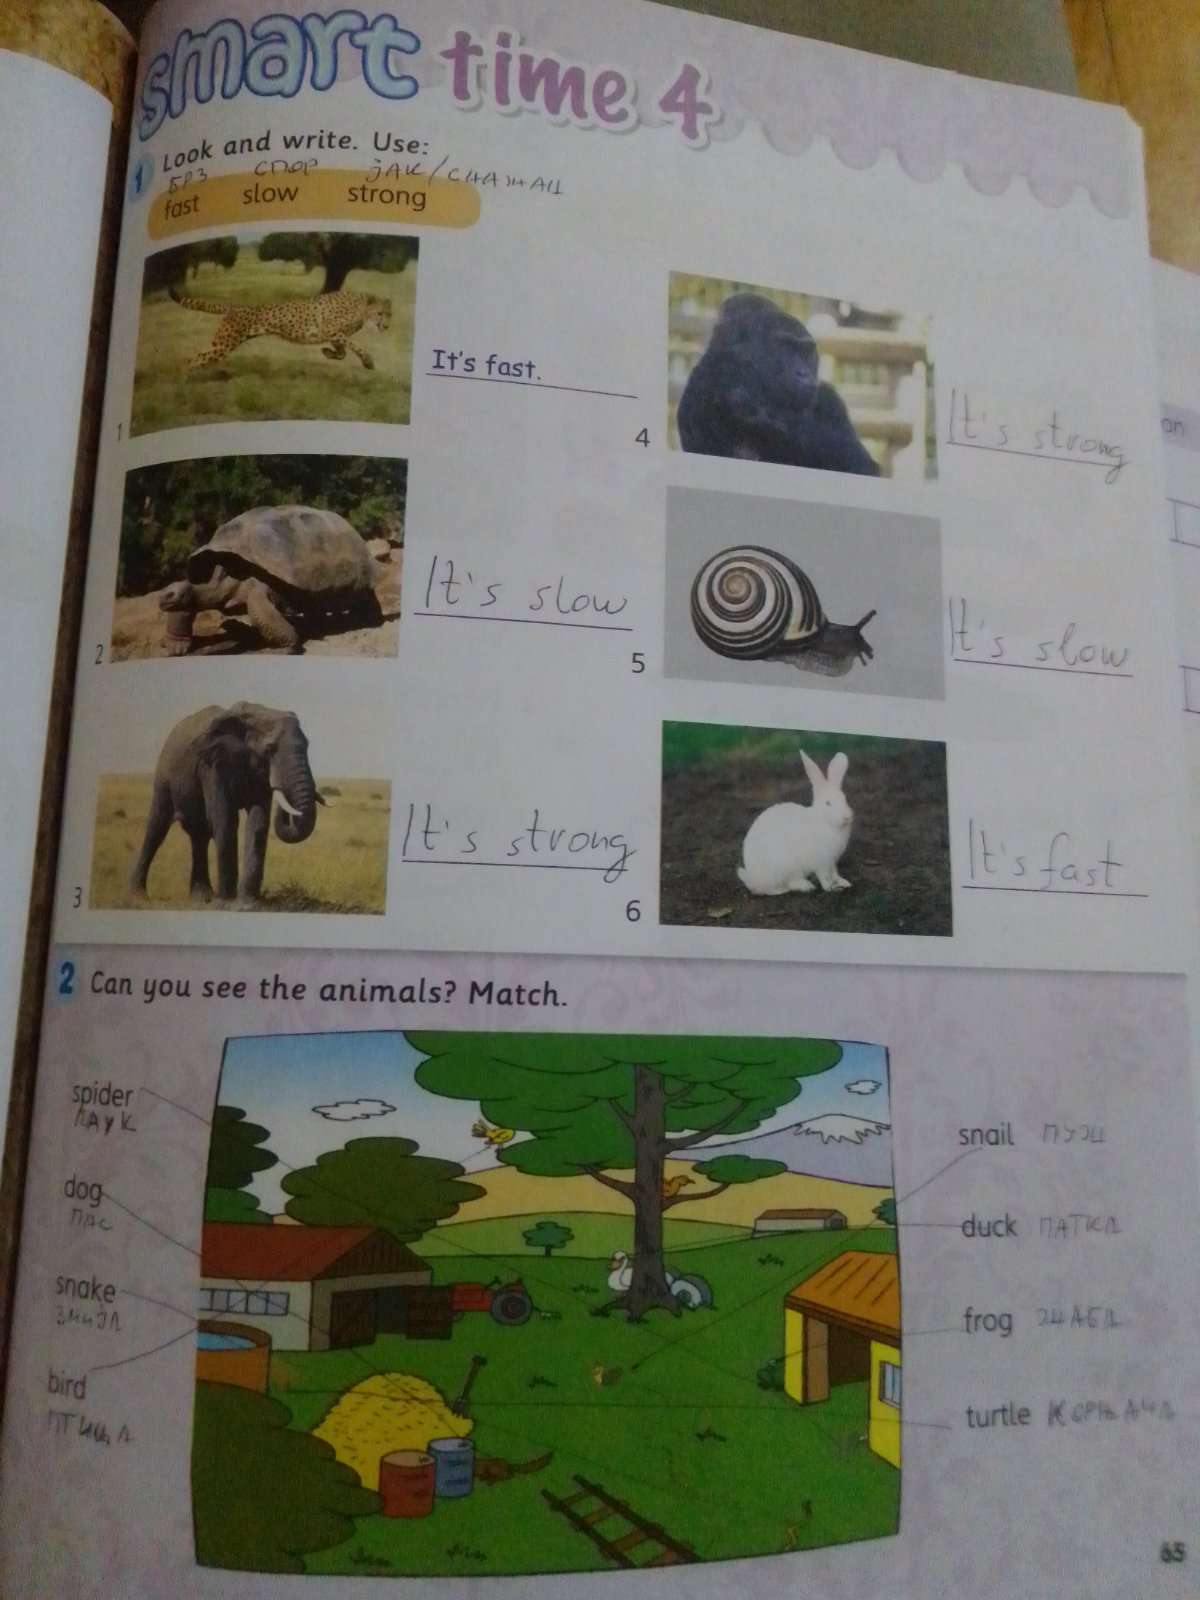 smart time 4
1 Look and write. Use:
БРЗ СПОР ЈАК/СНАЖАН
fast slow strong
1 It's fast.
2 It's slow
3 It's strong
4 It's strong
5 It's slow
6 It's fast
2 Can you see the animals? Match.
spider
ПАУК
dog
ПАС
snake
ЗМИЈА
bird
ПТИЦА
snail ПУЖ
duck ПАТКА
frog ЖАБА
turtle КОРЊАЧА
65